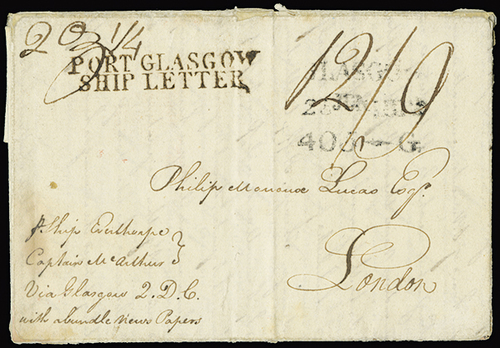 2 03 1/4
PORT GLASGOW
SHIP LETTER
GLASGOW
405-G
Philip Lucas Esqr.
London
pr Ship
Captain McArthur
Via Glasgow 2. D.C.
with a bundle News Papers